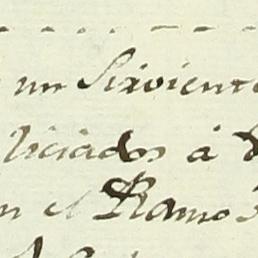 un Sirviente
liciados á
n el Ramo